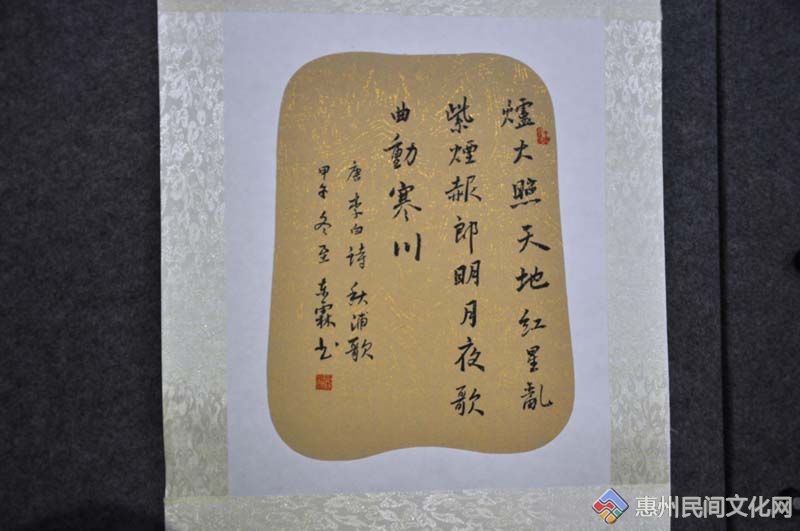 爐大照天地紅星亂
紫煙赧郎明月夜歌
曲動寒川
唐李白詩秋浦歌
甲午冬至東霖书
惠州民间文化网